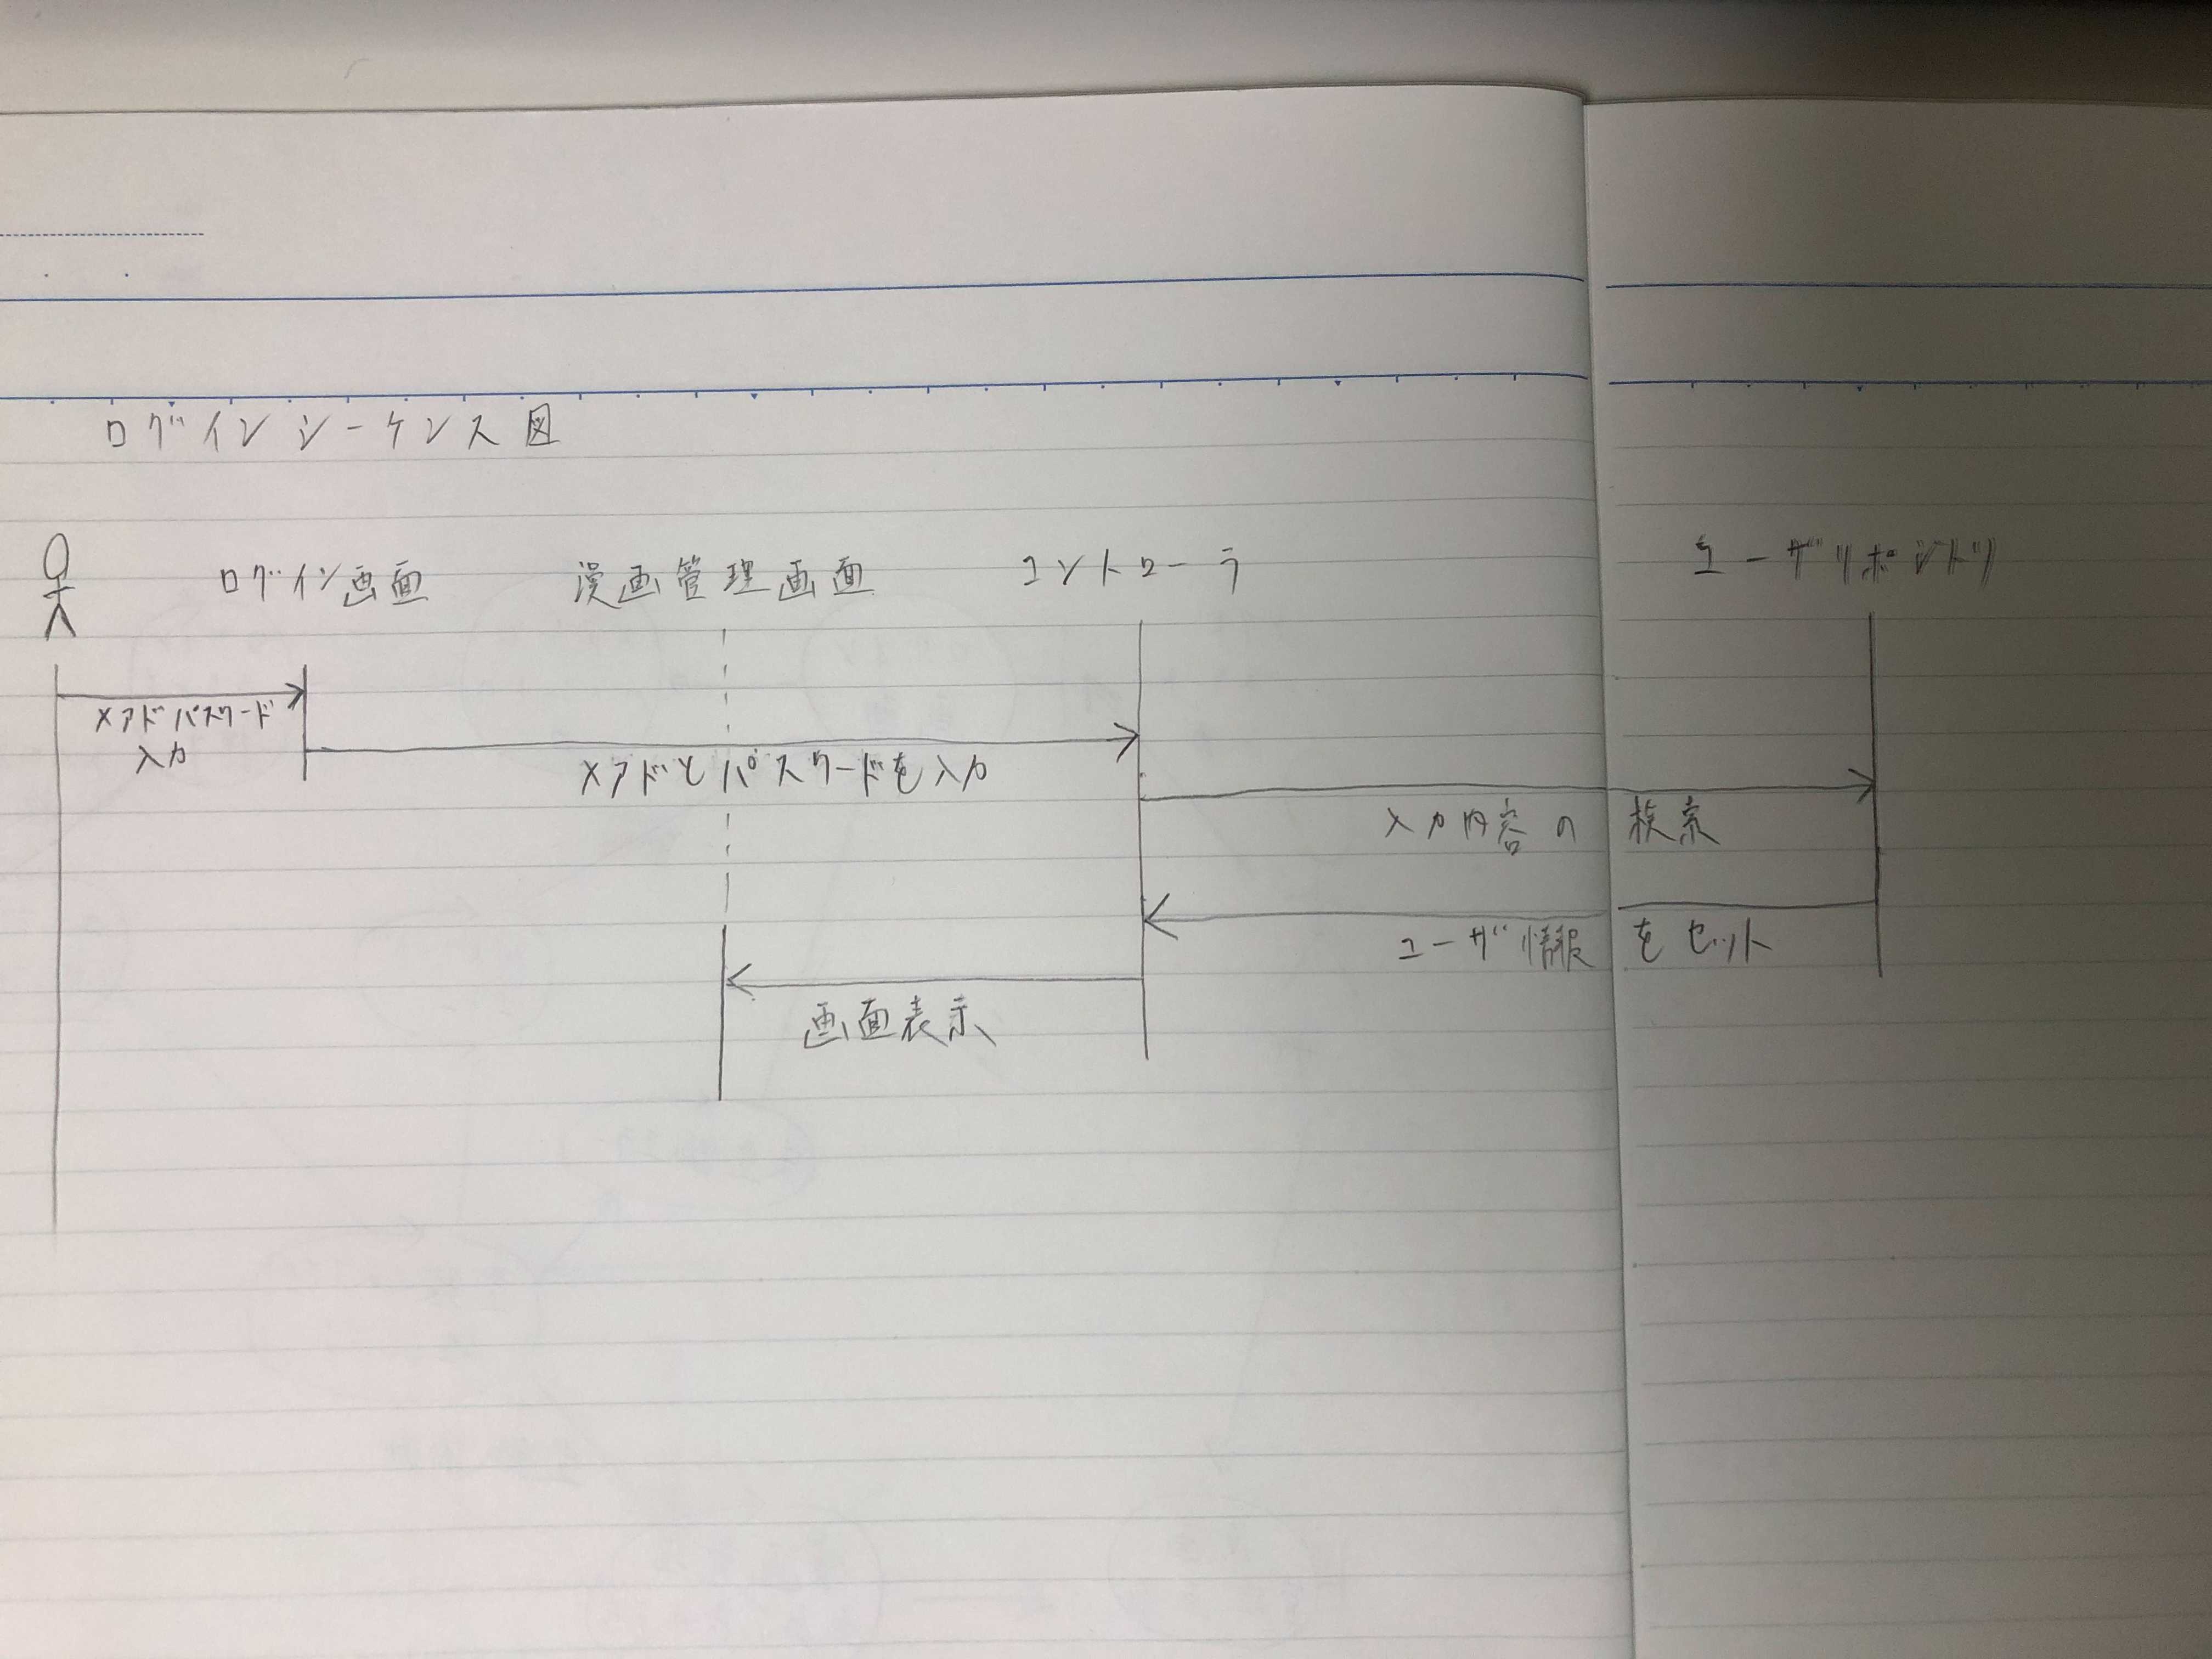 ログインシーケンス図
ログイン画面 漫画管理画面 コントローラ ユーザリポジトリ
メアドパスワード
入力
メアドとパスワードを入力
入力内容の検索
ユーザ情報をセット
画面表示